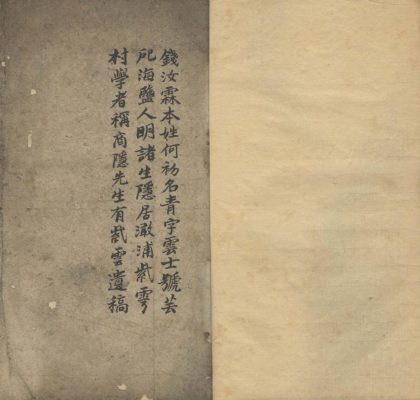 錢汝霖本姓何初名青字雲士號芸
𠂆海鹽人明諸生隱居澉浦紫雲
村學者稱商隱先生有紫雲遺稿